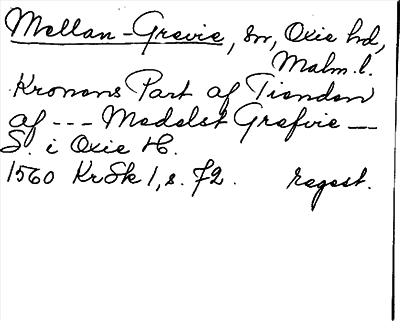 Mellan-Grevie, sn, Oxie hd,
Malm. l.
Kronans Part af Tienden
af --- Medelst Grefvie —
S. i Oxie H.
1560 KrSk 1, s. 72. regest.